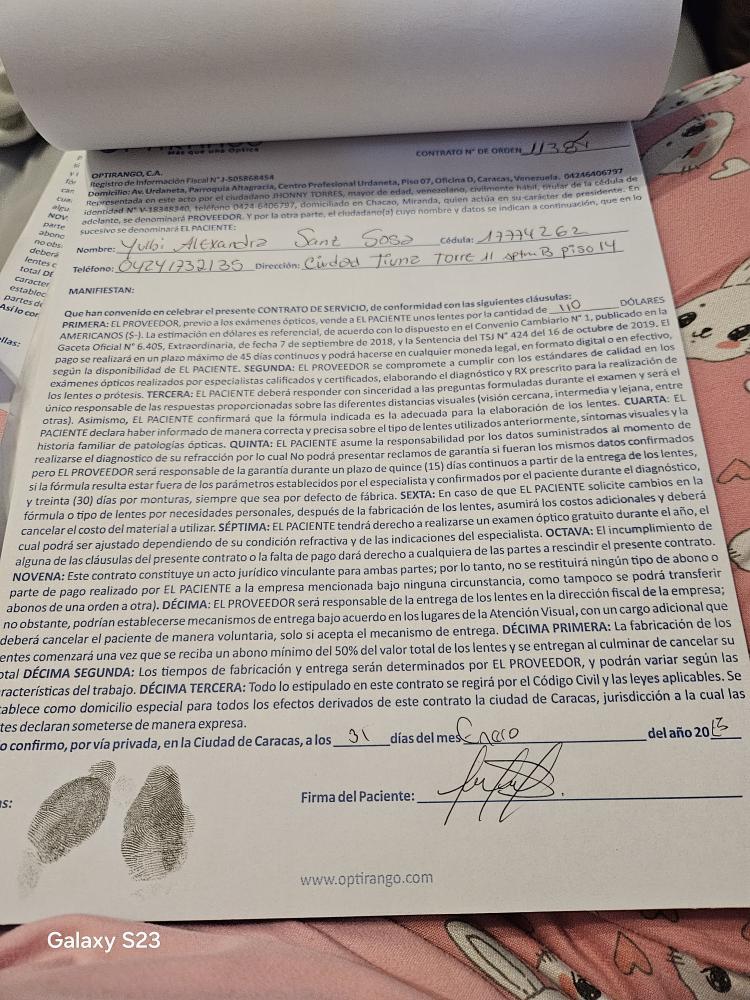 Más que una Óptica
CONTRATO N° DE ORDEN
OPTIRANGO, C.A.
Registro de Información Fiscal N° J-505868454
Domicilio: Av. Urdaneta, Parroquia Altagracia, Centro Profesional Urdaneta, Piso 07, Oficina D, Caracas, Venezuela. 04246406797
Representada en este acto por el ciudadano JHONNY TORRES, mayor de edad, venezolano, civilmente hábil, titular de la cédula de
identidad N° V-18348340, teléfono 0424-6406797, domiciliado en Chacao, Miranda, quien actúa en su carácter de presidente. En
adelante, se denominará PROVEEDOR. Y por la otra parte, el ciudadano(a) cuyo nombre y datos se indican a continuación, que en lo
sucesivo se denominará EL PACIENTE:
Nombre: Yulbi Alexandra Sanz Sosa Cédula: 17774262
Teléfono: 04241732135 Dirección: Ciudad Tiuna Torre 11 aptm B piso 14
MANIFIESTAN:
Que han convenido en celebrar el presente CONTRATO DE SERVICIO, de conformidad con las siguientes cláusulas:
PRIMERA: EL PROVEEDOR, previo a los exámenes ópticos, vende a EL PACIENTE unos lentes por la cantidad de 110 DÓLARES
AMERICANOS ($-). La estimación en dólares es referencial, de acuerdo con lo dispuesto en el Convenio Cambiario N° 1, publicado en la
Gaceta Oficial N° 6.405, Extraordinaria, de fecha 7 de septiembre de 2018, y la Sentencia del TSJ N° 424 del 16 de octubre de 2019. El
pago se realizará en un plazo máximo de 45 días continuos y podrá hacerse en cualquier moneda legal, en formato digital o en efectivo,
según la disponibilidad de EL PACIENTE. SEGUNDA: EL PROVEEDOR se compromete a cumplir con los estándares de calidad en los
exámenes ópticos realizados por especialistas calificados y certificados, elaborando el diagnóstico y RX prescrito para la realización de
los lentes o prótesis. TERCERA: EL PACIENTE deberá responder con sinceridad a las preguntas formuladas durante el examen y será el
único responsable de las respuestas proporcionadas sobre las diferentes distancias visuales (visión cercana, intermedia y lejana, entre
otras). Asimismo, EL PACIENTE confirmará que la fórmula indicada es la adecuada para la elaboración de los lentes. CUARTA: EL
PACIENTE declara haber informado de manera correcta y precisa sobre el tipo de lentes utilizados anteriormente, síntomas visuales y la
historia familiar de patologías ópticas. QUINTA: EL PACIENTE asume la responsabilidad por los datos suministrados al momento de
realizarse el diagnostico de su refracción por lo cual No podrá presentar reclamos de garantía si fueran los mismos datos confirmados
pero EL PROVEEDOR será responsable de la garantía durante un plazo de quince (15) días continuos a partir de la entrega de los lentes,
si la fórmula resulta estar fuera de los parámetros establecidos por el especialista y confirmados por el paciente durante el diagnóstico,
y treinta (30) días por monturas, siempre que sea por defecto de fábrica. SEXTA: En caso de que EL PACIENTE solicite cambios en la
fórmula o tipo de lentes por necesidades personales, después de la fabricación de los lentes, asumirá los costos adicionales y deberá
cancelar el costo del material a utilizar. SÉPTIMA: EL PACIENTE tendrá derecho a realizarse un examen óptico gratuito durante el año, el
cual podrá ser ajustado dependiendo de su condición refractiva y de las indicaciones del especialista. OCTAVA: El incumplimiento de
alguna de las cláusulas del presente contrato o la falta de pago dará derecho a cualquiera de las partes a rescindir el presente contrato.
NOVENA: Este contrato constituye un acto jurídico vinculante para ambas partes; por lo tanto, no se restituirá ningún tipo de abono o
parte de pago realizado por EL PACIENTE a la empresa mencionada bajo ninguna circunstancia, como tampoco se podrá transferir
abonos de una orden a otra). DÉCIMA: EL PROVEEDOR será responsable de la entrega de los lentes en la dirección fiscal de la empresa;
no obstante, podrían establecerse mecanismos de entrega bajo acuerdo en los lugares de la Atención Visual, con un cargo adicional que
deberá cancelar el paciente de manera voluntaria, solo si acepta el mecanismo de entrega. DÉCIMA PRIMERA: La fabricación de los
entes comenzará una vez que se reciba un abono mínimo del 50% del valor total de los lentes y se entregan al culminar de cancelar su
otal DÉCIMA SEGUNDA: Los tiempos de fabricación y entrega serán determinados por EL PROVEEDOR, y podrán variar según las
racterísticas del trabajo. DÉCIMA TERCERA: Todo lo estipulado en este contrato se regirá por el Código Civil y las leyes aplicables. Se
tablece como domicilio especial para todos los efectos derivados de este contrato la ciudad de Caracas, jurisdicción a la cual las
tes declaran someterse de manera expresa.
o confirmo, por vía privada, en la Ciudad de Caracas, a los 31 días del mes Enero del año 20
as:
Firma del Paciente:
www.optirango.com
Galaxy S23